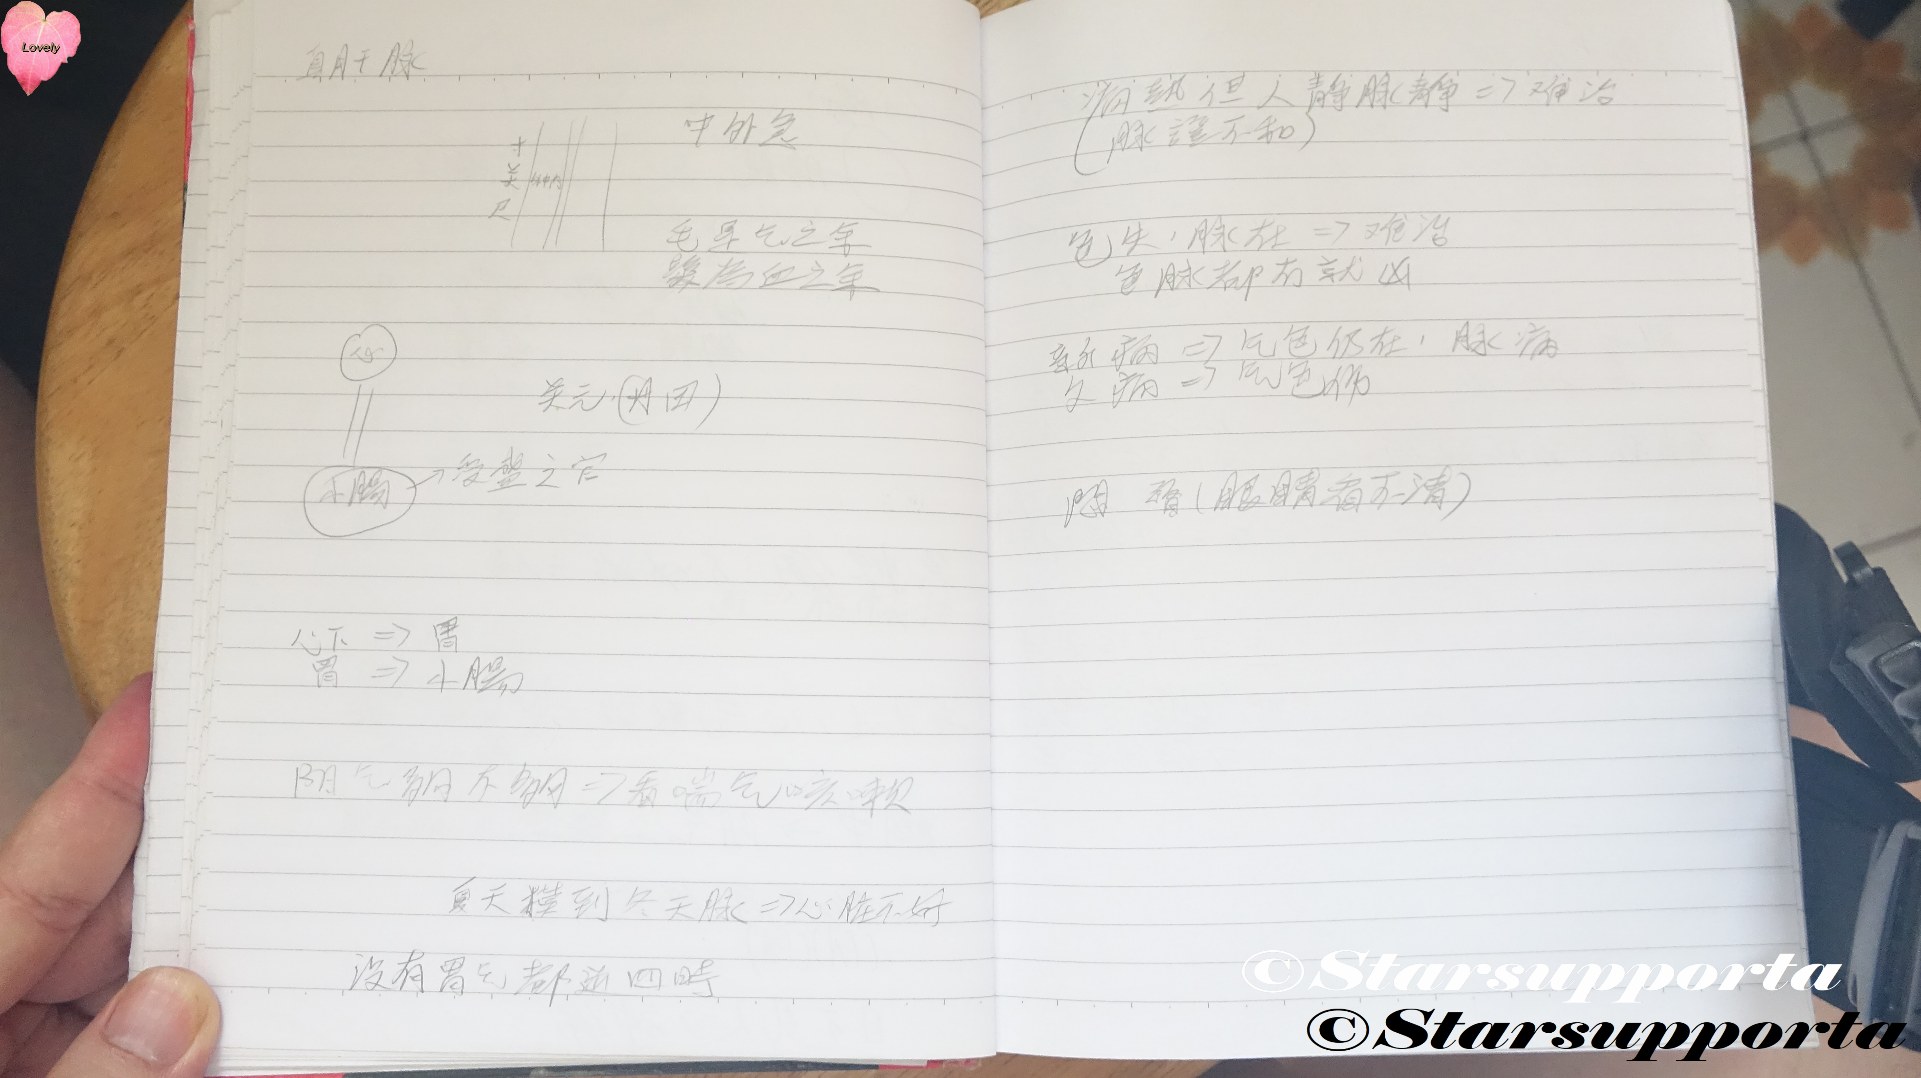 Lovely
真肝脉
中外急
寸
关
尺
毛是气之余
髮為血之余
心
关元(丹田)
小腸
受盛之官
心下 => 胃
胃 => 小腸
阴气夠不夠 => 看喘气咳嗽
夏天摸到冬天脉 => 心脏不好
没有胃气都逆四時
病熱但人靜脉靜 => 难治
(脉證不和)
色失,脉在 => 难治
色脉都冇就凶
新病 => 气色仍在,脉病
久病 => 气色伤
悶 瞀(眼睛看不清)
©Starsupporta
©Starsupporta